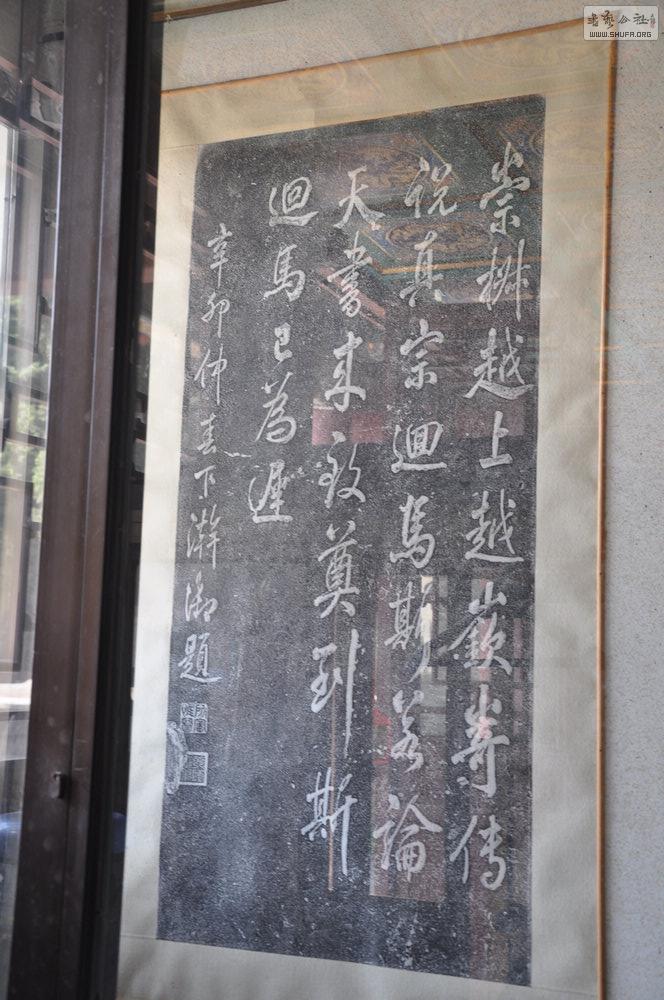 崇椒越上越嶔崎傳
說真宗迴馬斯若論
天書來致奠到斯
迴馬已為遲
辛卯仲春下澣御題
書藝公社
WWW.SHUFA.ORG